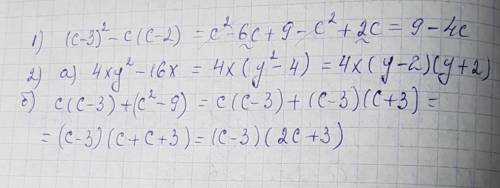 1) (c-3)² - c(c-2) = c² - 6c + 9 - c² + 2c = 9 - 4c
2) a) 4xy² - 16x = 4x(y² - 4) = 4x(y-2)(y+2)
б) c(c-3) + (c² - 9) = c(c-3) + (c-3)(c+3) =
= (c-3)(c+c+3) = (c-3)(2c+3)